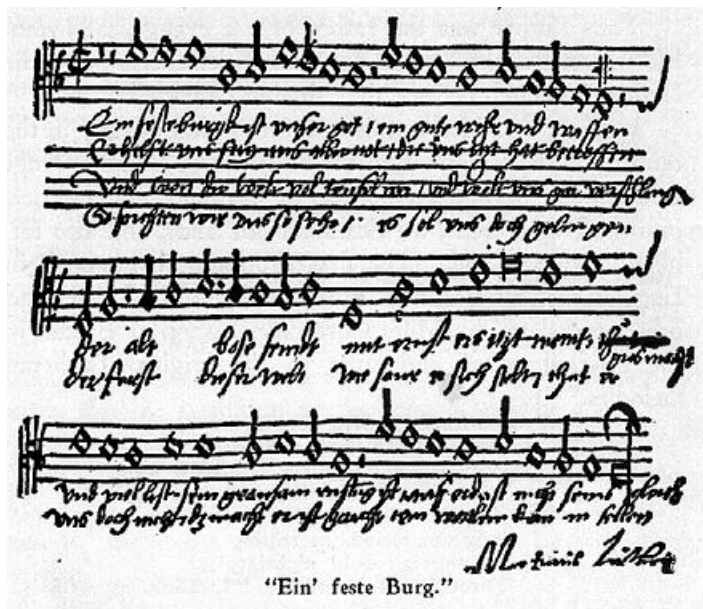 Ein feste burgk ist unser got ein gute wehr und waffen
Er hilft uns frey aus aller not die uns hat betroffen
Und wen die welt vol teuffel wer und wolt uns gar verschlingen
So furchten wir uns so sehr es sol uns doch gelingen
der alt bose feindt mit ernst ers itzt meint
gros macht
der furst dieser welt wie saur er sich stelt thut er
und viel list sein grausam rustung ist auf erd ist nicht seins gleich
uns doch nicht das macht er ist gericht ein wortlein kan in fellen
Martinus Luther
"Ein' feste Burg."